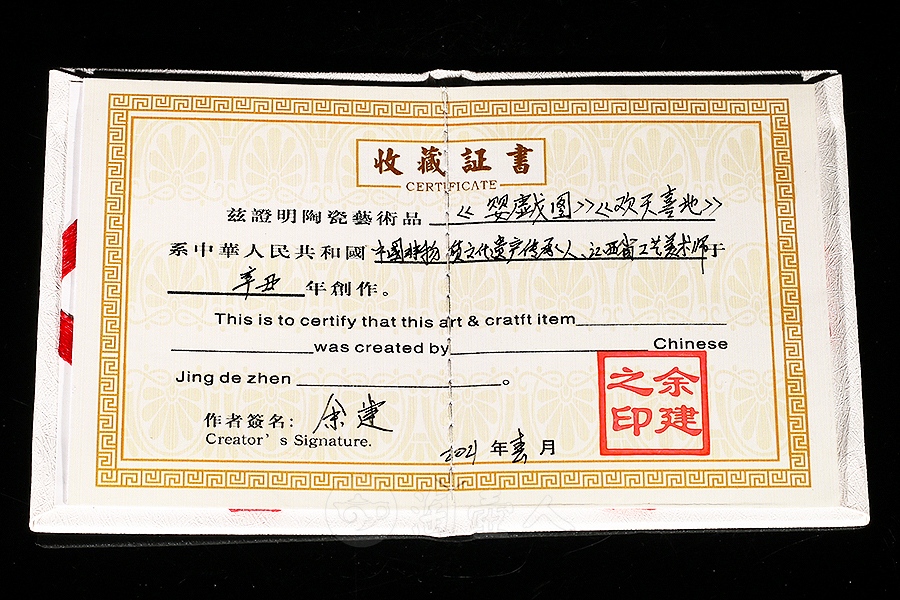 收藏証書
CERTIFICATE
茲證明陶瓷藝術品《婴戏图》《欢天喜地》
系中華人民共和國中國非物质文化遗产传承人、江西省工艺美术师于
辛丑年創作。
This is to certify that this art & cratft item
was created by Chinese
Jing de zhen 。
作者簽名：余建
Creator's Signature.
2021年春月
余建之印